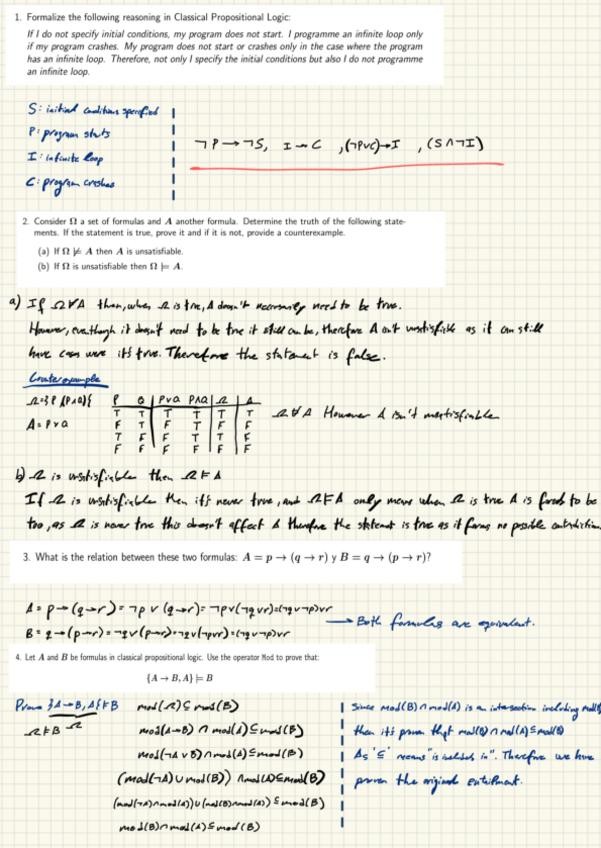 1. Formalize the following reasoning in Classical Propositional Logic:
If I do not specify initial conditions, my program does not start. I programme an infinite loop only
if my program crashes. My program does not start or crashes only in the case where the program
has an infinite loop. Therefore, not only I specify the initial conditions but also I do not programme
an infinite loop.
S: initial conditions specified
P: program starts
I: infinite loop
C: program crashes
¬P→¬S, I→C, (¬P∨C)→I, (S∧¬I)
2. Consider Ω a set of formulas and A another formula. Determine the truth of the following state-
ments. If the statement is true, prove it and if it is not, provide a counterexample.
(a) If Ω ⊭ A then A is unsatisfiable.
(b) If Ω is unsatisfiable then Ω ⊨ A.
a) If Ω⊭A then, when Ω is true, A doesn't necessarily need to be true.
However, even though it doesn't need to be true it still can be, therefore A isn't unsatisfiable as it can still
have cases were it's true. Therefore the statement is false.
Counterexample
A = P∨Q
P Q P∨Q P∧Q Ω A
T T T T T T
F T F T T F
T F F T T F
F F F F F F
Ω⊭A However A isn't unsatisfiable
b) Ω is unsatisfiable then Ω⊨A
If Ω is unsatisfiable then it's never true, and Ω⊨A only means when Ω is true A is forced to be
too, as Ω is never true this doesn't affect A therefore the statement is true as it forms no possible contradiction.
3. What is the relation between these two formulas: A = p → (q → r) y B = q → (p → r)?
A = p→(q→r) = ¬p∨(q→r) = ¬p∨(¬q∨r) = (¬q∨¬p)∨r
B = q→(p→r) = ¬q∨(p→r) = ¬q∨(¬p∨r) = (¬q∨¬p)∨r
→ Both formulas are equivalent.
4. Let A and B be formulas in classical propositional logic. Use the operator Mod to prove that:
{A → B, A} ⊨ B
Prove {A→B, A} ⊨ B
Ω⊨B Ω
mod(Ω)⊆mod(B)
mod(A→B)∩mod(A)⊆mod(B)
mod(¬A∨B)∩mod(A)⊆mod(B)
(mod(¬A)∪mod(B))∩mod(A)⊆mod(B)
(mod(¬A)∩mod(A))∪(mod(B)∩mod(A))⊆mod(B)
mod(B)∩mod(A)⊆mod(B)
Since mod(B)∩mod(A) is an intersection including mod(B)
then it's proven that mod(B)∩mod(A)⊆mod(B)
As '⊆' means "is included in". Therefore we have
proven the original entailment.